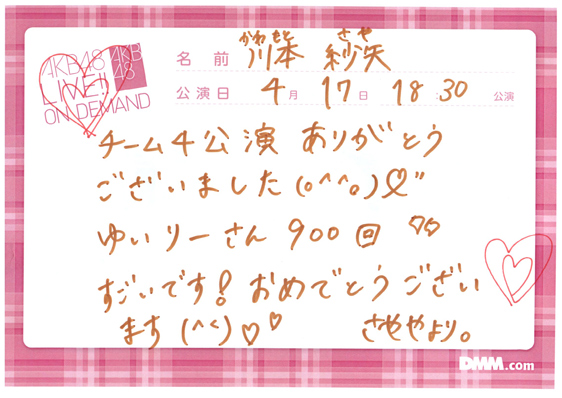 AKB48
LIVE!!
ON DEMAND
AKB
48
かわもと さや
名前 川本 紗矢
公演日 4月 17日 18:30 公演
チーム4公演 ありがとう
ございました(o^^o)♡"
ゆいりーさん 900回 ♡♡
すごいです! おめでとうござい
ます (^^)♡♡ さややより。
DMM.com